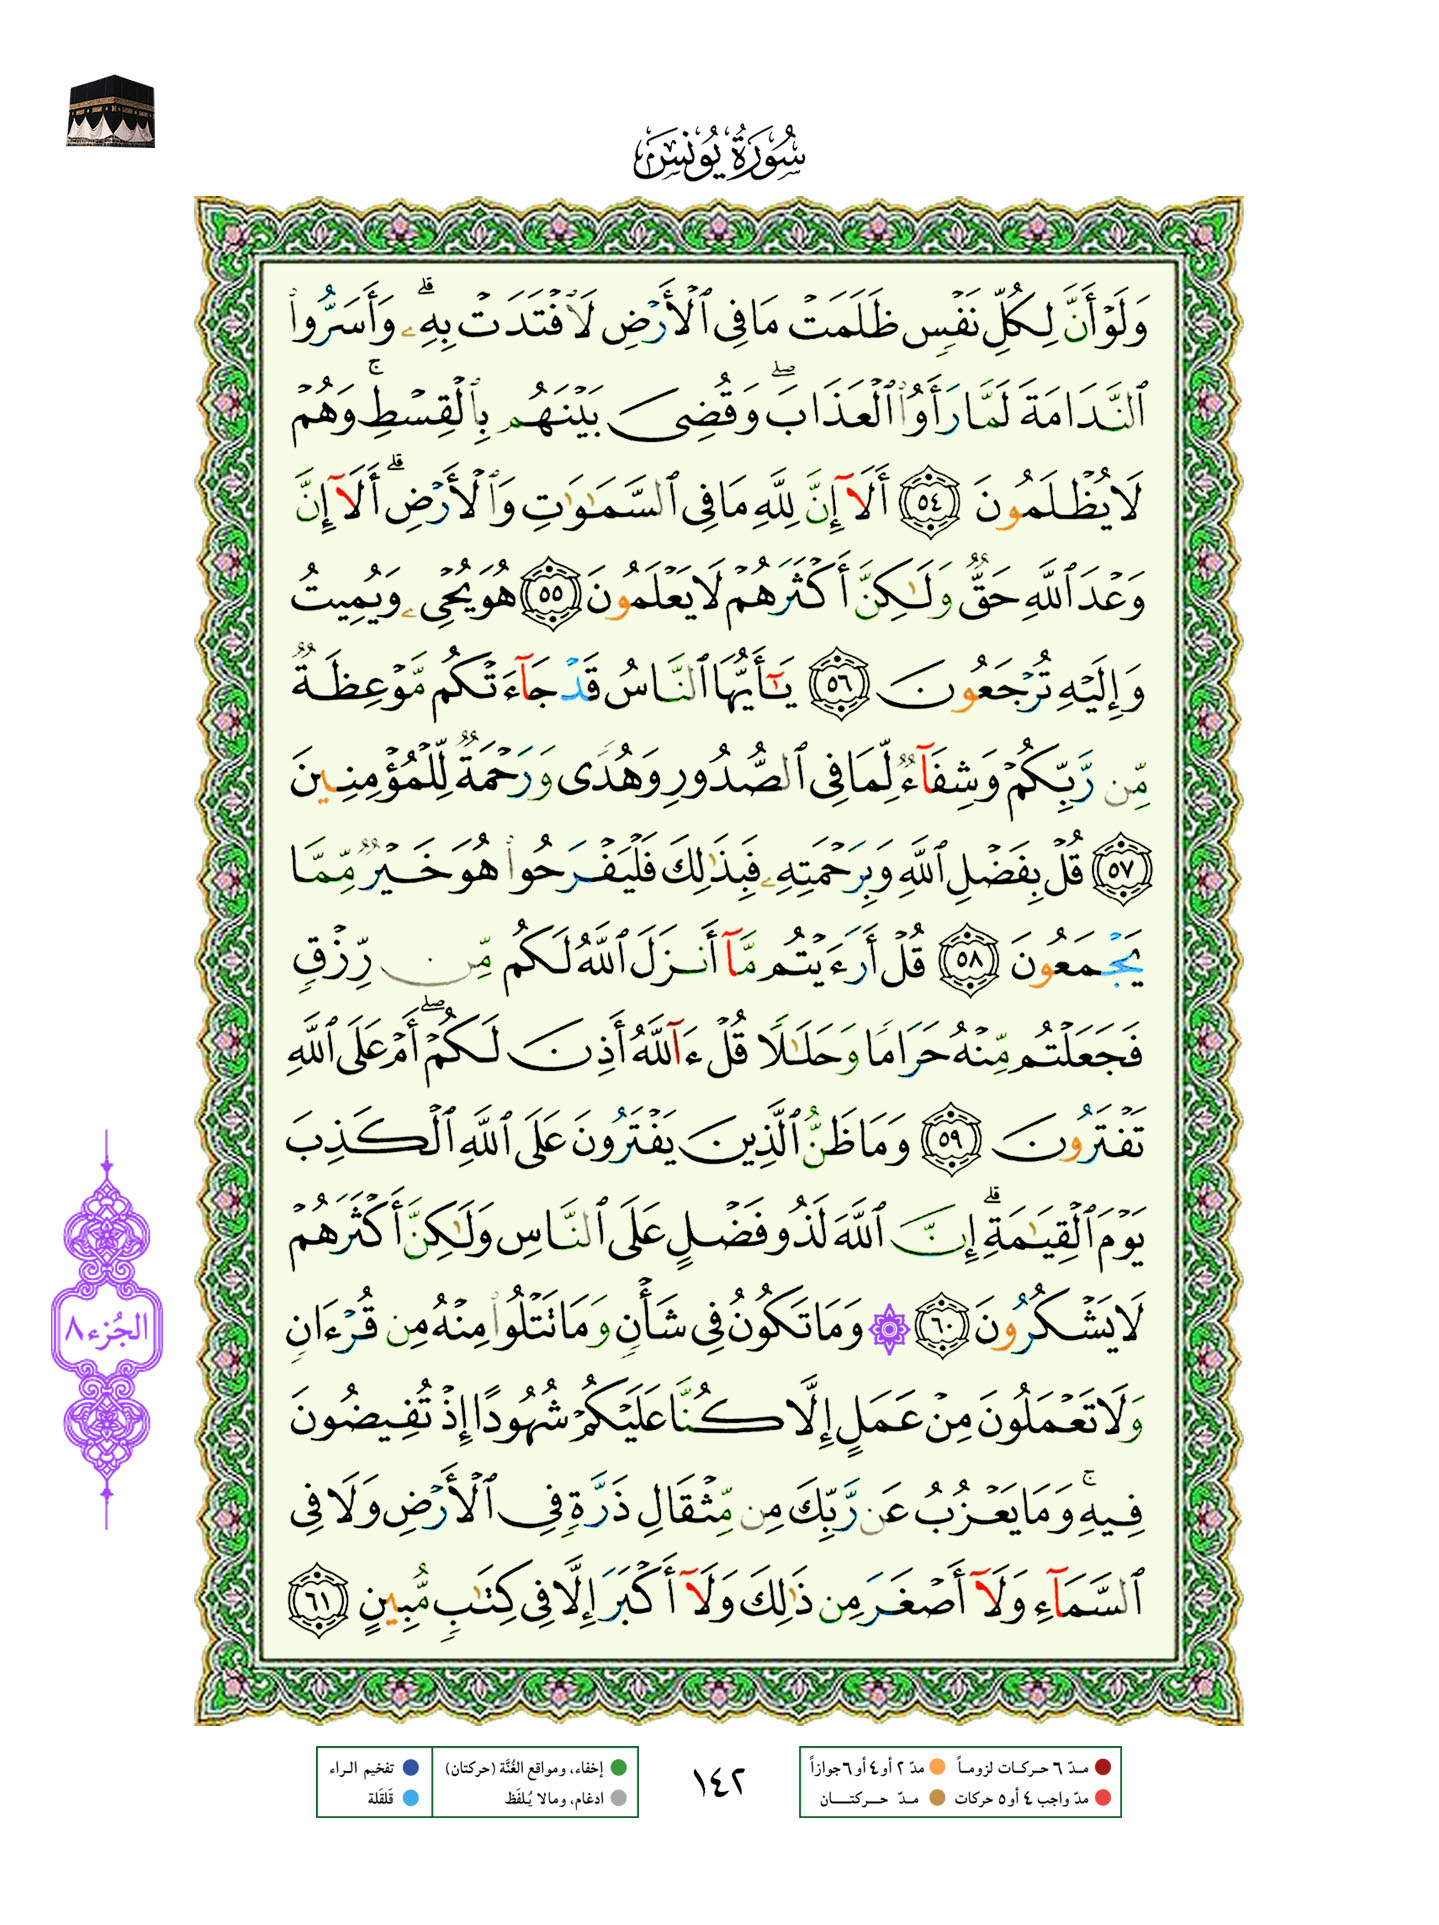 سُورَةُ يُونُسَ
وَلَوْ أَنَّ لِكُلِّ نَفْسٍ ظَلَمَتْ مَا فِى ٱلْأَرْضِ لَٱفْتَدَتْ بِهِۦ ۗ وَأَسَرُّوا۟
ٱلنَّدَامَةَ لَمَّا رَأَوُا۟ ٱلْعَذَابَ ۖ وَقُضِىَ بَيْنَهُم بِٱلْقِسْطِ ۚ وَهُمْ
لَا يُظْلَمُونَ ٥٤ أَلَآ إِنَّ لِلَّهِ مَا فِى ٱلسَّمَـٰوَٰتِ وَٱلْأَرْضِ ۗ أَلَآ إِنَّ
وَعْدَ ٱللَّهِ حَقٌّ وَلَـٰكِنَّ أَكْثَرَهُمْ لَا يَعْلَمُونَ ٥٥ هُوَ يُحْىِۦ وَيُمِيتُ
وَإِلَيْهِ تُرْجَعُونَ ٥٦ يَـٰٓأَيُّهَا ٱلنَّاسُ قَدْ جَآءَتْكُم مَّوْعِظَةٌ
مِّن رَّبِّكُمْ وَشِفَآءٌ لِّمَا فِى ٱلصُّدُورِ وَهُدًى وَرَحْمَةٌ لِّلْمُؤْمِنِينَ
٥٧ قُلْ بِفَضْلِ ٱللَّهِ وَبِرَحْمَتِهِۦ فَبِذَٰلِكَ فَلْيَفْرَحُوا۟ هُوَ خَيْرٌ مِّمَّا
يَجْمَعُونَ ٥٨ قُلْ أَرَءَيْتُم مَّآ أَنزَلَ ٱللَّهُ لَكُم مِّن رِّزْقٍ
فَجَعَلْتُم مِّنْهُ حَرَامًا وَحَلَـٰلًا قُلْ ءَآللَّهُ أَذِنَ لَكُمْ ۖ أَمْ عَلَى ٱللَّهِ
تَفْتَرُونَ ٥٩ وَمَا ظَنُّ ٱلَّذِينَ يَفْتَرُونَ عَلَى ٱللَّهِ ٱلْكَذِبَ
يَوْمَ ٱلْقِيَـٰمَةِ ۗ إِنَّ ٱللَّهَ لَذُو فَضْلٍ عَلَى ٱلنَّاسِ وَلَـٰكِنَّ أَكْثَرَهُمْ
لَا يَشْكُرُونَ ٦٠ ۞ وَمَا تَكُونُ فِى شَأْنٍ وَمَا تَتْلُوا۟ مِنْهُ مِن قُرْءَانٍ
وَلَا تَعْمَلُونَ مِنْ عَمَلٍ إِلَّا كُنَّا عَلَيْكُمْ شُهُودًا إِذْ تُفِيضُونَ
فِيهِ ۚ وَمَا يَعْزُبُ عَن رَّبِّكَ مِن مِّثْقَالِ ذَرَّةٍ فِى ٱلْأَرْضِ وَلَا فِى
ٱلسَّمَآءِ وَلَآ أَصْغَرَ مِن ذَٰلِكَ وَلَآ أَكْبَرَ إِلَّا فِى كِتَـٰبٍ مُّبِينٍ ٦١
الجُزء ٨
مدّ ٦ حركات لزوماً مدّ ٢ أو ٤ أو ٦ جوازاً
مدّ واجب ٤ أو ٥ حركات مدّ حركتان
١٤٢
إخفاء، ومواقع الغُنَّة (حركتان) تفخيم الراء
ادغام، ومالا يُلفَظ قَلقَلة